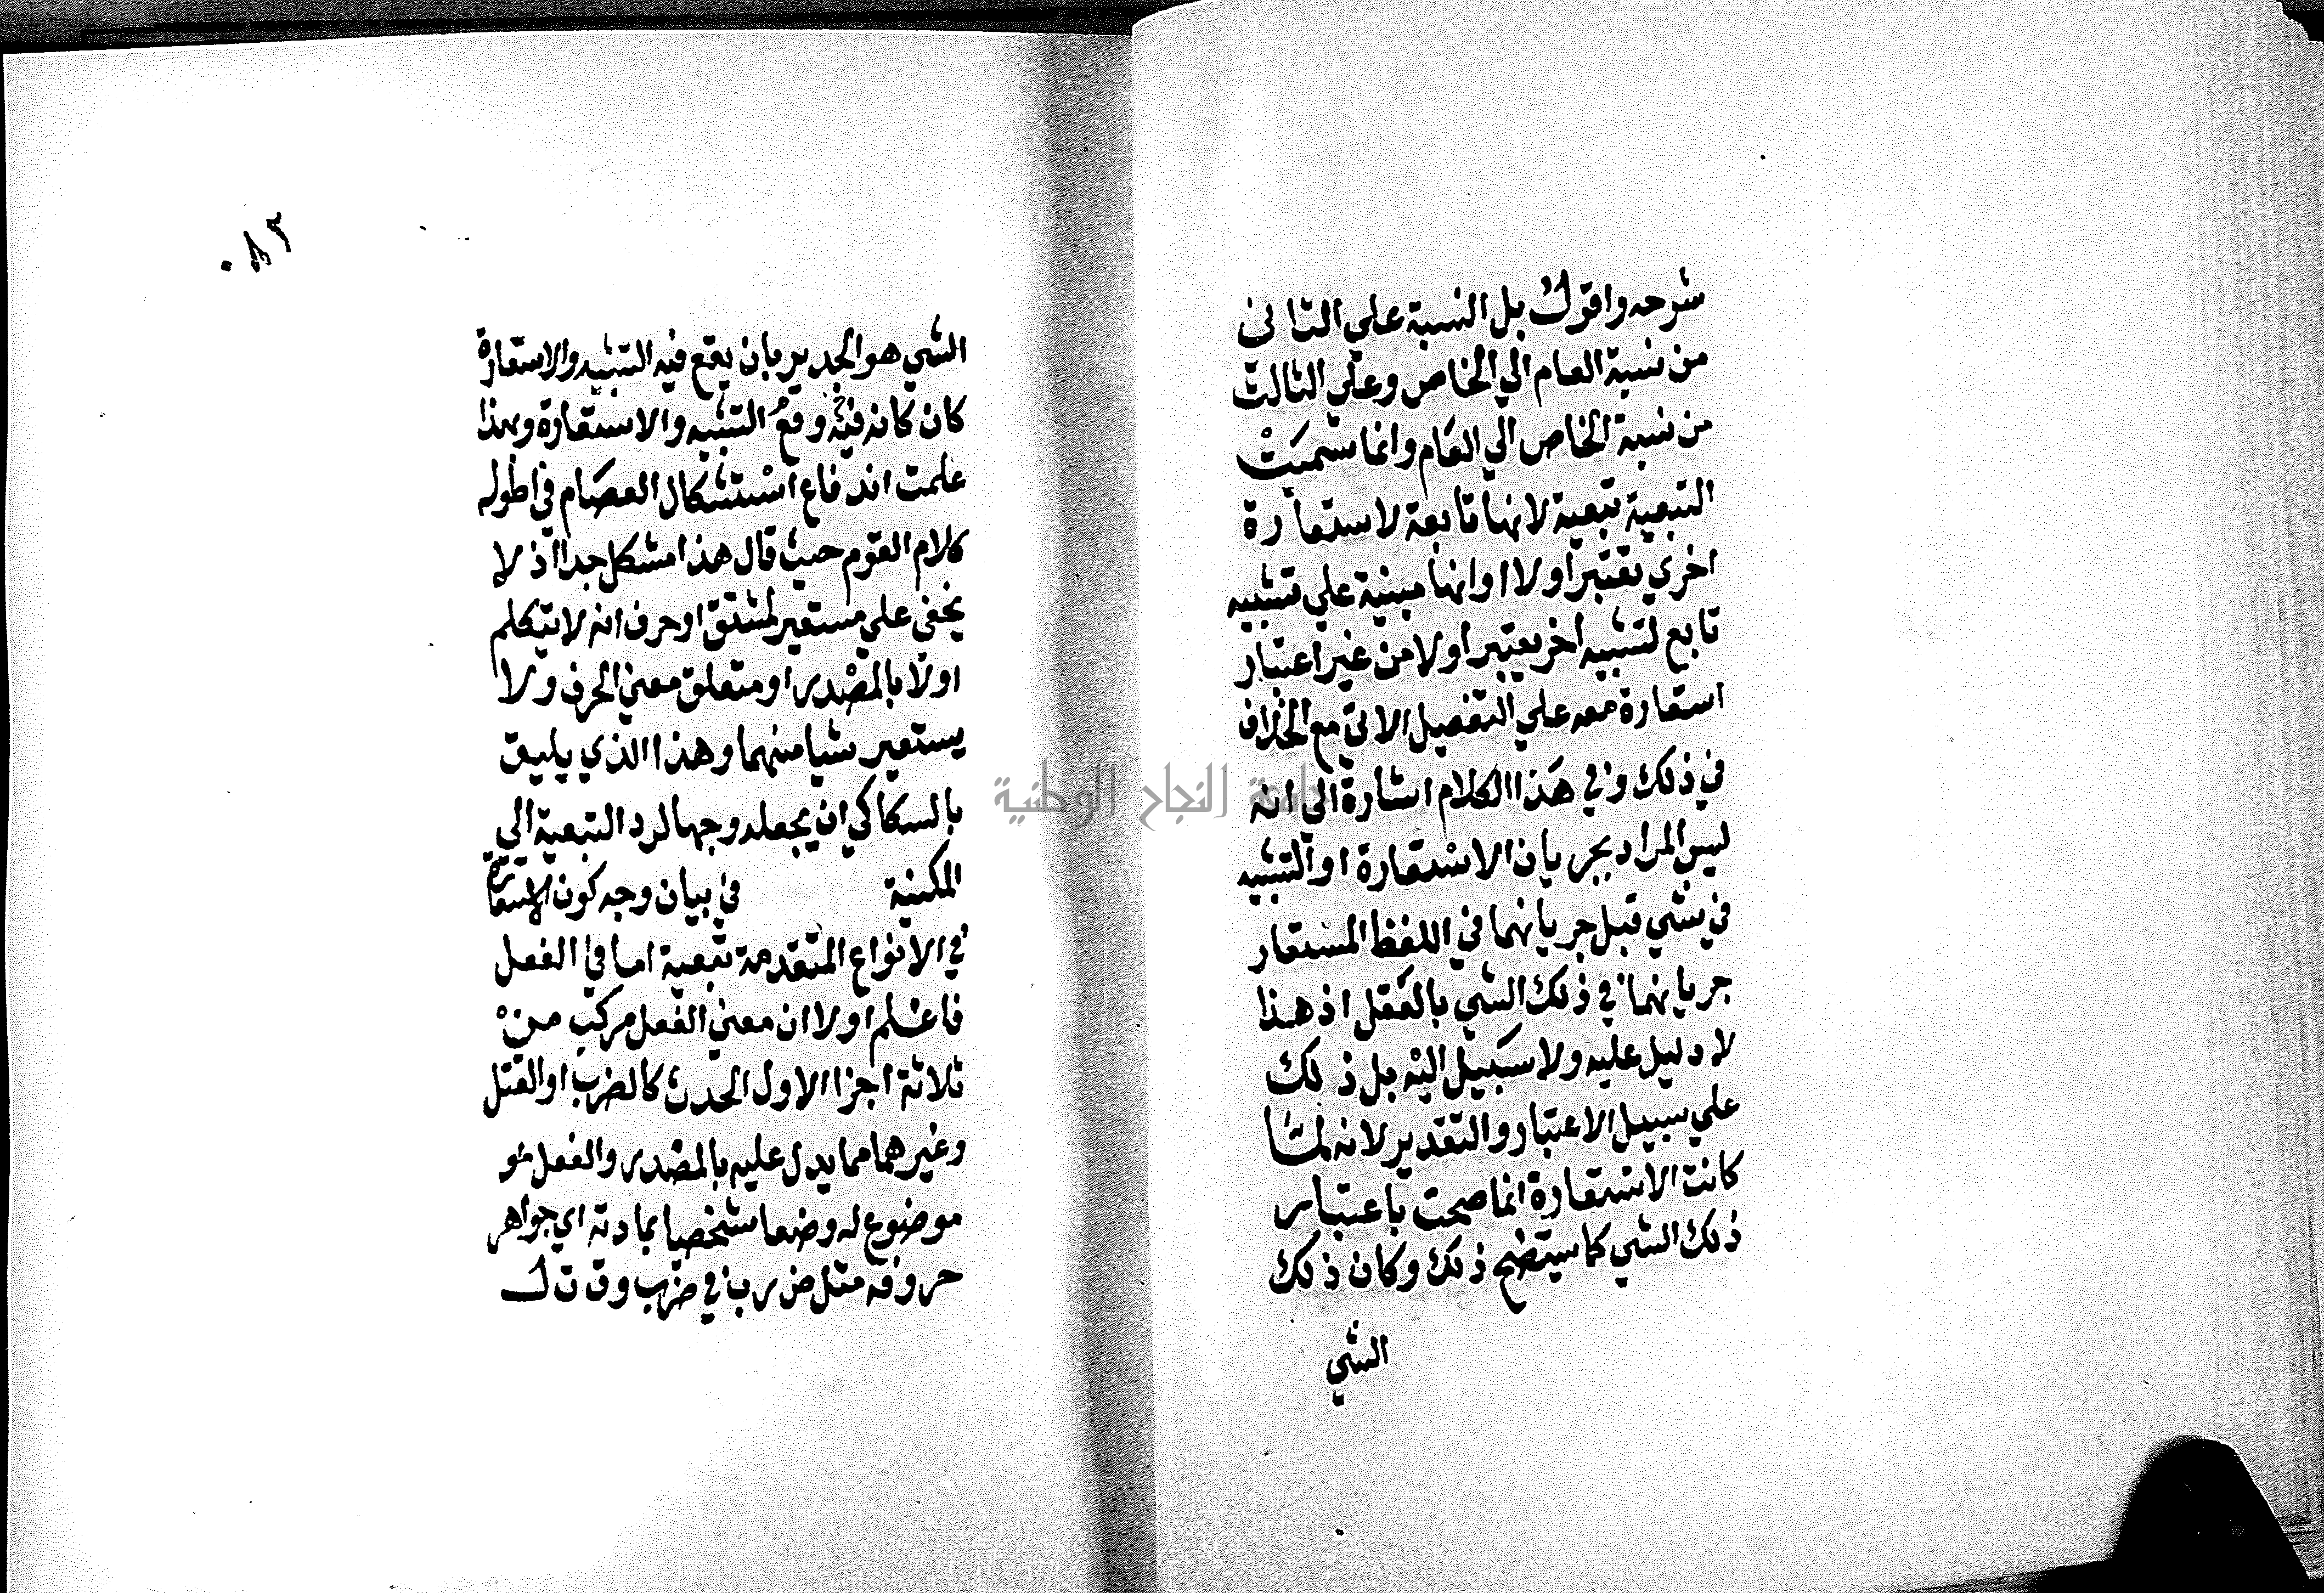 شرحه واقول بل النسبة علي الثاني
من نسبة العام الي الخاص وعلي الثالث
من نسبة الخاص الي العام وانما سميت
التبعية تبعية لانها تابعة لاستعارة
اخري تعتبر اولا او انها مبنية علي تشبيه
تابع لتشبيه اخر يعتبر اولا من غير اعتبار
استعارة معه علي التفصيل الاتي مع الخلاف
في ذلك وفي هذا الكلام اشارة الي انه
ليس المراد بجريان الاستعارة او التشبيه
في شي قبل جريانهما في اللفظ المستعار
جريانهما في ذلك الشي بالفعل اذ هذا
لا دليل عليه ولا سبيل اليه بل ذلك
علي سبيل الاعتبار والتقدير لانه لما
كانت الاستعارة انما صحت باعتبار
ذلك الشي كما سيتضح ذلك وكان ذلك
الشي
٠٨٢
الشي هو الجدير بان يقع فيه التشبيه والاستعارة
كان كانه فيه وقع التشبيه والاستعارة وبهذا
علمت اندفاع استشكال العصام في اطوله
كلام القوم حيث قال هذا مشكل جدا اذ لا
يخفي علي مستعير لمشتق او حرف انه لا يتكلم
اولا بالمصدر او متعلق معني الحرف ولا
يستعير شيا منهما وهذا الذي يليق
بالسكاكي ان يجعله وجها لرد التبعية الي
المكنية في بيان وجه كون الاستعارة
في الانواع المتقدمة تبعية اما في الفعل
فاعلم اولا ان معني الفعل مركب من
ثلاثة اجزا الاول الحدث كالضرب او القتل
وغيرهما مما يدل عليه بالمصدر والفعل هو
موضوع له وضعا شخصيا بمادته اي جواهر
حروفه مثل ض ر ب في ضرب و ق ت ل
جامعة النجاح الوطنية